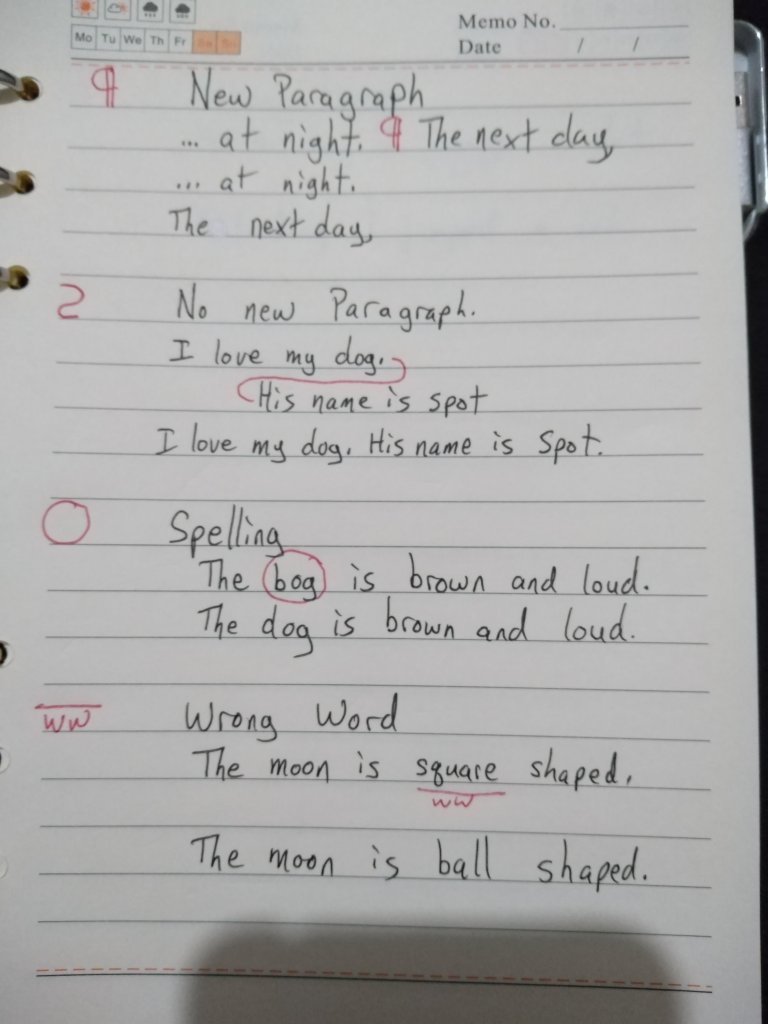 Memo No.
Mo Tu We Th Fr Sa Su
Date / /
¶ New Paragraph
... at night. ¶ The next day,
... at night.
The next day,
No new Paragraph.
I love my dog.
His name is spot
I love my dog. His name is Spot.
Spelling
The bog is brown and loud.
The dog is brown and loud.
ww Wrong Word
The moon is square shaped.
ww
The moon is ball shaped.